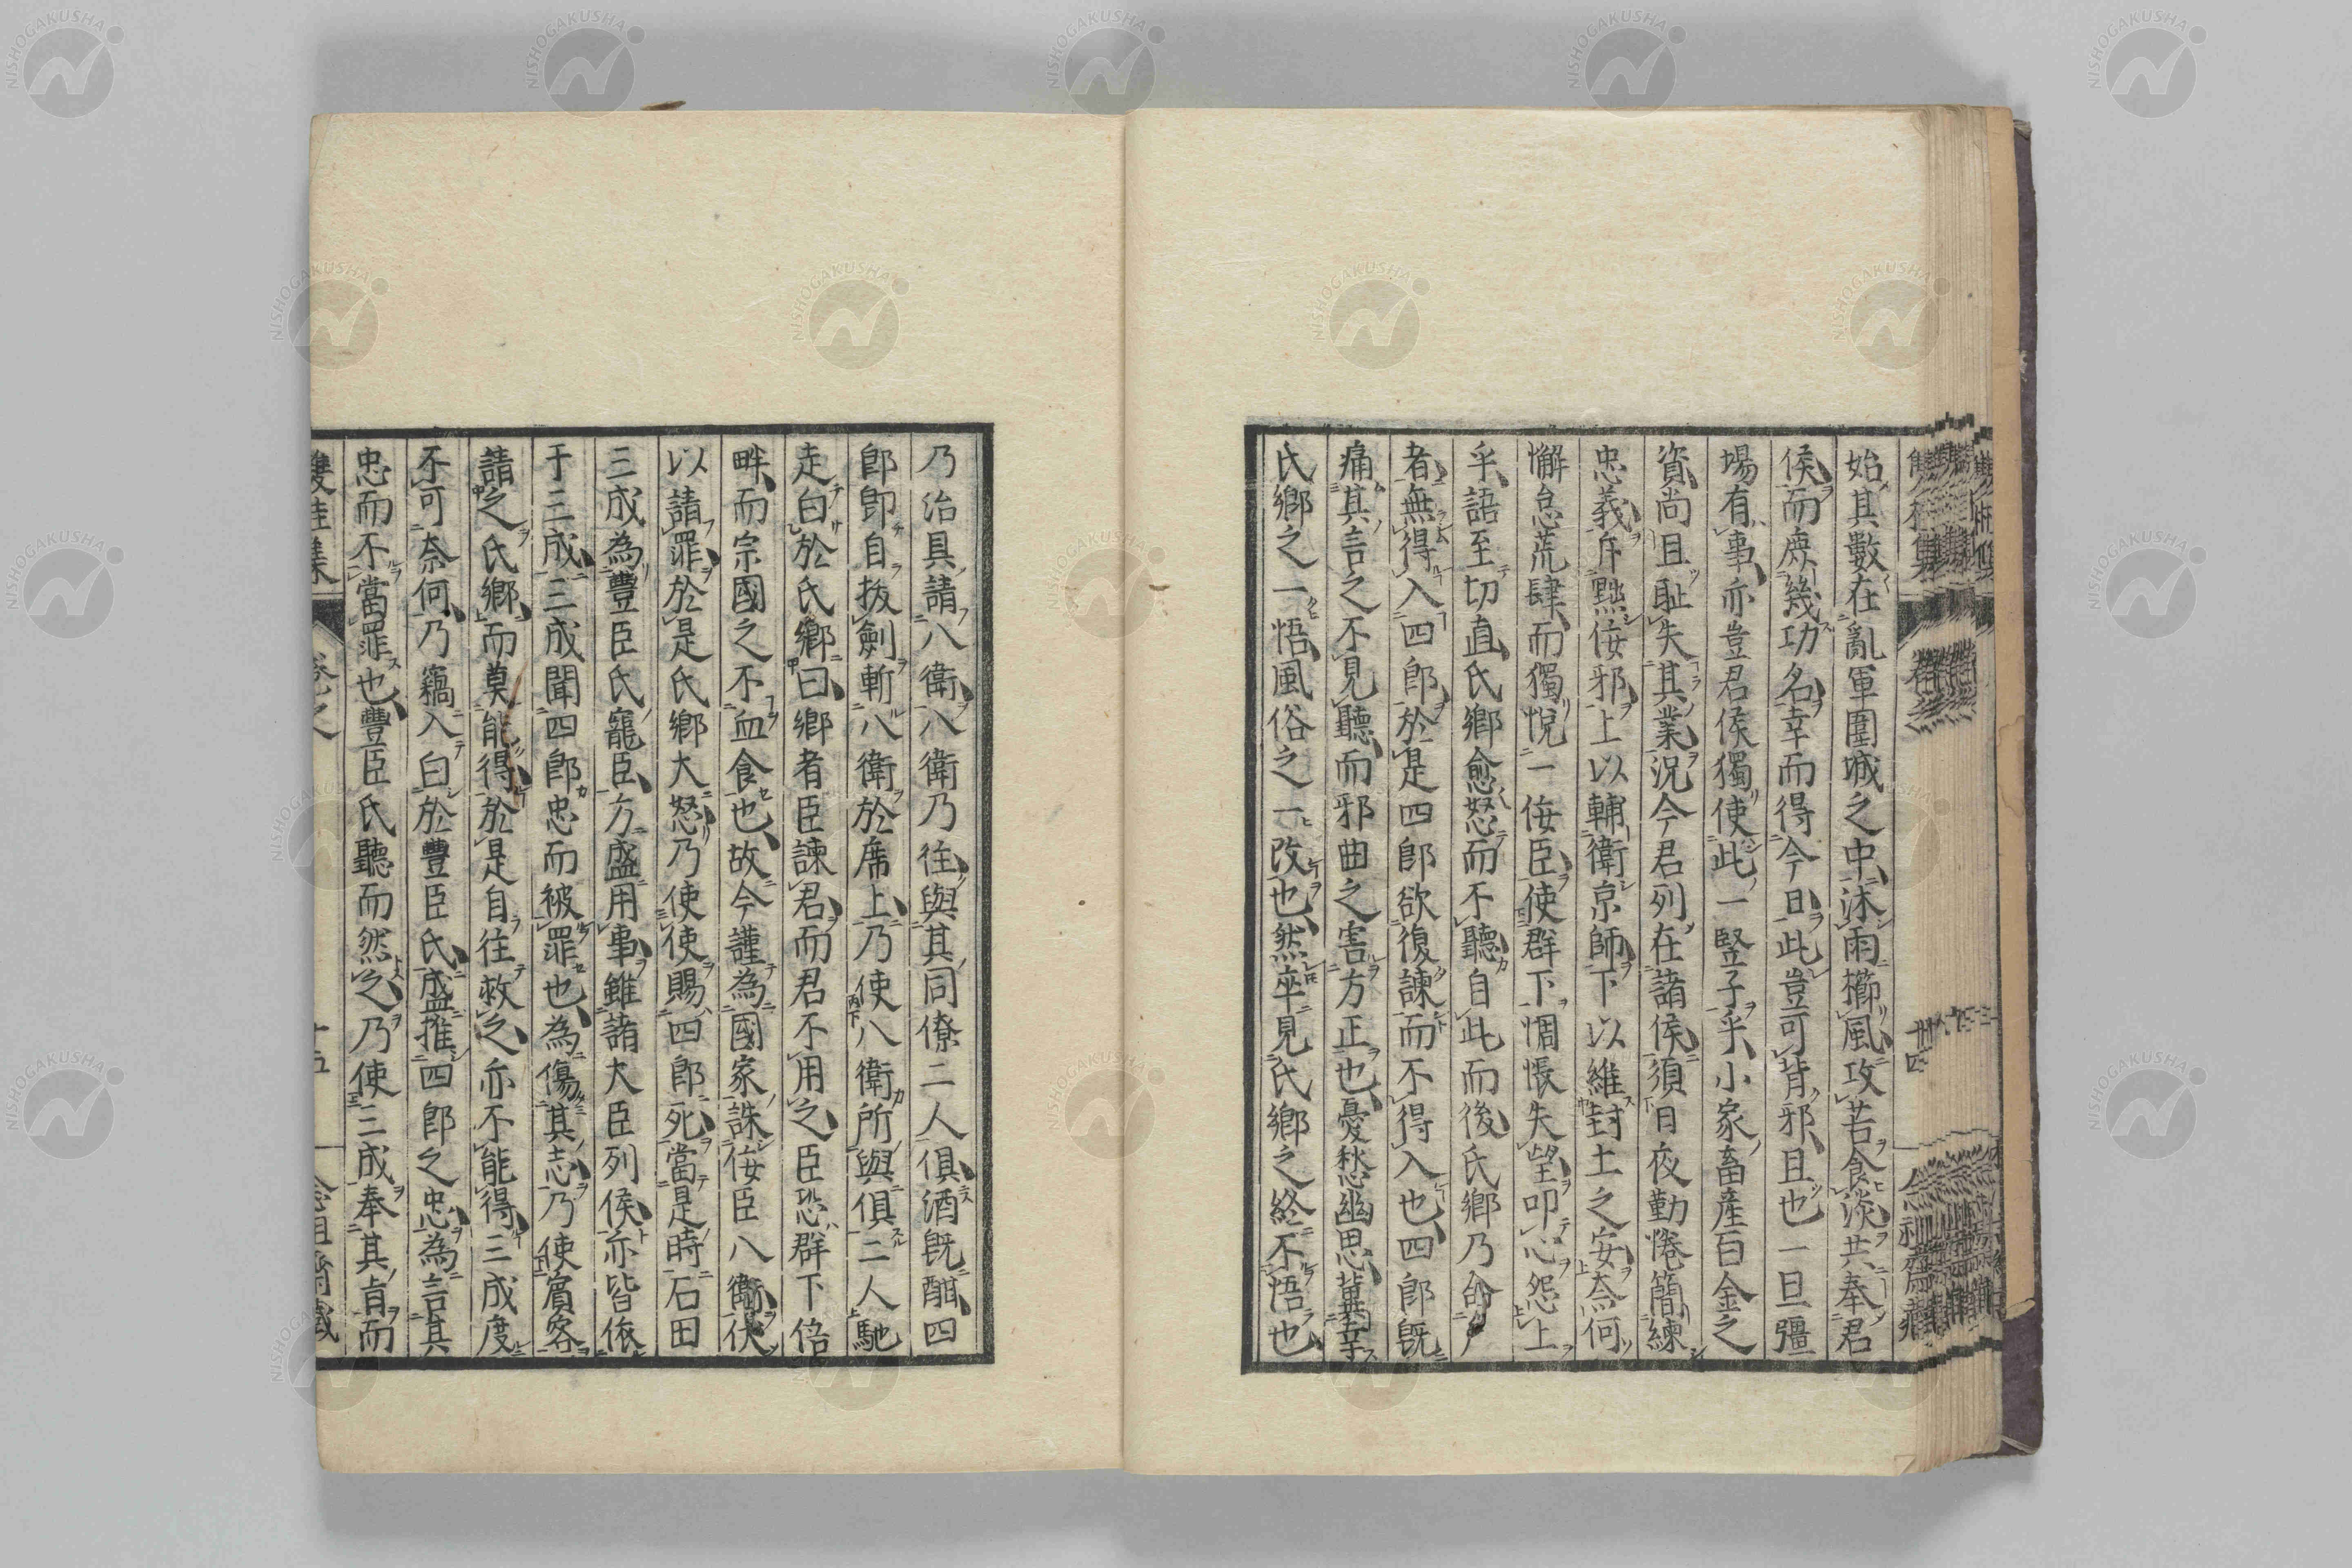 始其數在亂軍圍城之中沐雨櫛風攻苦食淡共奉君
侯而庶幾功名幸而得今日此豈可背邪且也一旦彊
場有事亦豈君侯獨使此一竪子乎小家畜產百金之
資尚且耻失其業況今君列在諸侯須日夜勤惓簡練
忠義斥黜侫邪上以輔衛京師下以維封土之安奈何
懈怠荒肆而獨悅一侫臣使群下惆悵失望叩心怨上
乎語至切直氏鄉愈怒而不聽自此而後氏鄉乃命
者無得入四郎於是四郎欲復諫而不得入也四郎既
痛其言之不見聽而邪曲之害方正也憂愁幽思冀幸
氏鄉之一悟風俗之一改也然卒見氏鄉之終不悟也
乃治具請八衛八衛乃往與其同僚二人俱酒既酣四
郎即自拔劍斬八衛於席上乃使八衛所與俱二人馳
走白於氏鄉曰鄉者臣諫君而君不用之臣恐群下倍
畔而宗國之不血食也故今謹為國家誅侫臣八衛伏
以請罪於是氏鄉大怒乃使使賜四郎死當是時石田
三成為豐臣氏寵臣方盛用事雖諸大臣列侯亦皆依
于三成三成聞四郎忠而被罪也為傷其志乃使賓客
請之氏鄉而莫能得於是自往救之亦不能得三成度
不可奈何乃竊入白於豐臣氏盛推四郎之忠為言其
忠而不當罪也豐臣氏聽而然之乃使三成奉其旨而
雙桂集 卷之 十五